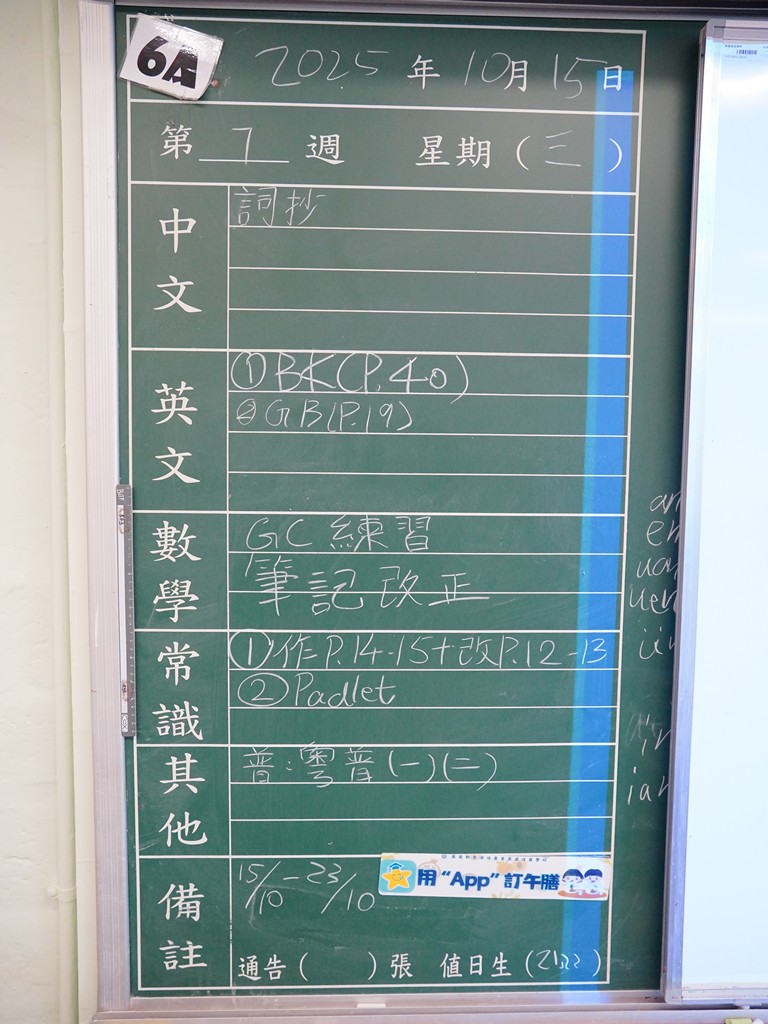 6A
2025 年 10月 15日
第 7 週 星期 (三)
中文
詞抄
英文
①BK(P.40)
②GB(P.19)
數學
GC 練習
筆記改正
常識
①作P.14-15+改P.12-13
②Padlet
其他
普:粵普(一)(二)
備註
15/10-23/10
用“App”訂午膳
通告( )張 值日生(21,22)